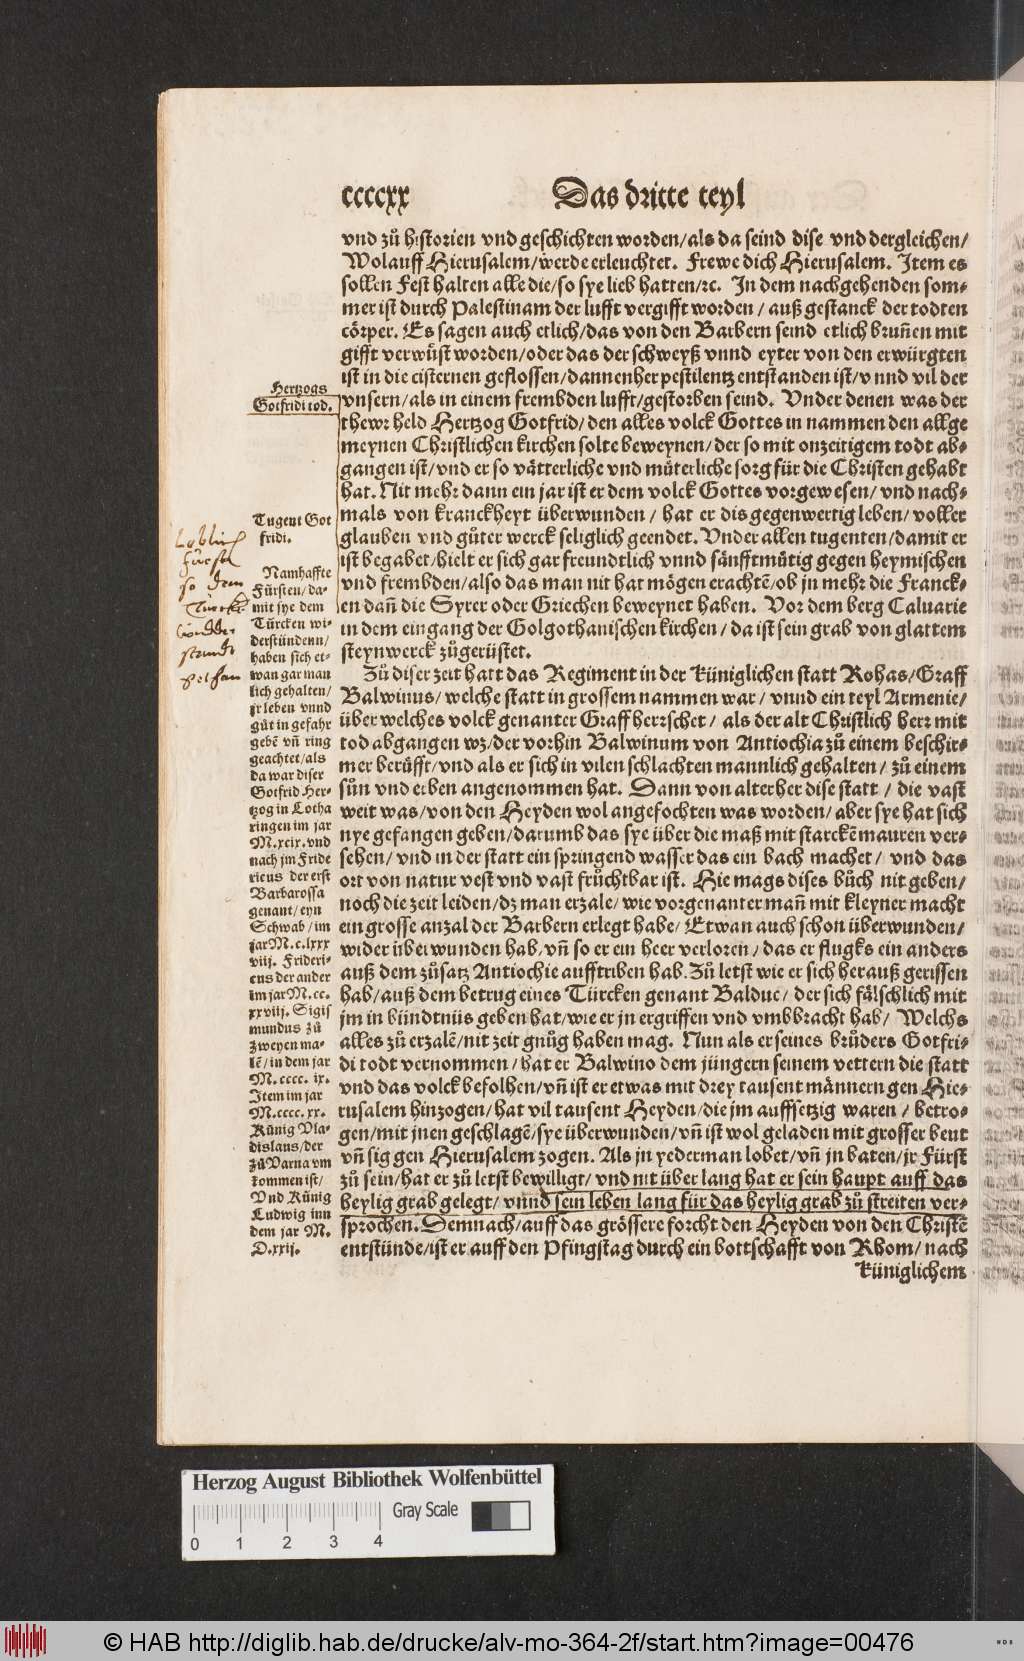 ccccxx Das dritte teyl
vnd zů historien vnd geschichten worden/als da seind dise vnd dergleichen/
Wolauff Hierusalem/werde erleuchtet. Frewe dich Hierusalem. Item es
sollen Fest halten alle die/so sye lieb hatten/ꝛc. In dem nachgehenden som⸗
mer ist durch Palestinam der lufft vergifft worden/ auß gestanck der todten
cörper. Es sagen auch etlich/das von den Barbern seind etlich bruñen mit
gifft verwüst worden/oder das der schweyß vnnd eyter von den erwürgten
ist in die cisternen geflossen/dannenher pestilentz entstanden ist/vnnd vil der
vnsern/als in einem frembden lufft/gestorben seind. Vnder denen was der
thewr held Hertzog Gotfrid/den alles volck Gottes in nammen den allge
meynen Christlichen kirchen solte beweynen/der so mit onzeitigem todt ab⸗
gangen ist/vnd er so vätterliche vnd můterliche sorg für die Christen gehabt
hat. Nit mehr dann ein jar ist er dem volck Gottes vorgewesen/vnd nach⸗
mals von kranckheyt überwunden/ hat er dis gegenwertig leben/voller
glauben vnd gůter werck seliglich geendet. Vnder allen tugenten/damit er
ist begabet/hielt er sich gar freundtlich vnnd sänfftmütig gegen heymischen
vnd frembden/also das man nit hat mögen erachtẽ/ob jn mehr die Franck⸗
en dañ die Syrer oder Griechen beweynet haben. Vor dem berg Caluarie
in dem eingang der Golgothanischen kirchen/da ist sein grab von glattem
steynwerck zůgerüstet.
Zů diser zeit hatt das Regiment in der Küniglichen statt Rohas/Graff
Balwinus/welche statt in grossem nammen war/ vnnd ein teyl Armenie/
über welches volck genanter Graff herrschet/ als der alt Christlich herr mit
tod abgangen wz/der vorhin Balwinum von Antiochia zů einem beschir⸗
mer berüfft/vnd als er sich in vilen schlachten mannlich gehalten/ zů einem
sůn vnd erben angenommen hat. Dann von alterher dise statt/ die vast
weit was/von den Heyden wol angefochten was worden/aber sye hat sich
nye gefangen geben/darumb das sye über die maß mit starckẽ mauren ver⸗
sehen/ vnd in der statt ein springend wasser das ein bach machet/ vnd das
ort von natur vest vnd vast frůchtbar ist. Hie mags dises bůch nit geben/
noch die zeit leiden/dz man erzale/wie vorgenanter mañ mit kleyner macht
ein grosse anzal der Barbern erlegt habe/ Etwan auch schon überwunden/
wider überwunden hab/vñ so er ein heer verloren/das er flugks ein anders
auß dem zůsatz Antiochie aufftriben hab. Zů letst wie er sich herauß gerissen
hab/auß dem betrug eines Türcken genant Balduc/ der sich fälschlich mit
jm in bündtnüs geben hat/wie er jn ergriffen vnd vmbbracht hab/ Welchs
alles zů erzalẽ/nit zeit gnůg haben mag. Nun als er seines brůders Gotfri⸗
di todt vernommen/hat er Balwino dem jüngern seinem vettern die statt
vnd das volck befolhen/vñ ist er etwas mit drey tausent männern gen Hie⸗
rusalem hinzogen/hat vil tausent Heyden/die jm auffsetzig waren/ betro⸗
gen/mit jnen geschlagẽ/sye überwunden/vñ ist wol geladen mit grosser beut
vñ sig gen Hierusalem zogen. Als jn yederman lobet/vñ jn baten/jr Fürst
zů sein/hat er zů letst bewilligt/ vnd nit über lang hat er sein haupt auff das
heylig grab gelegt/ vnnd sein leben lang für das heylig grab zů streiten ver⸗
sprochen. Demnach/auff das grössere forcht den Heyden von den Christẽ
entstünde/ist er auff den Pfingstag durch ein bottschafft von Rhom/nach
Küniglichem
Hertzogs
Gotfridi tod.
Tugent Got
fridi.
Löblich
fürst
so dem
Türcken
widder
standt
gethan
Namhaffte
Fürsten/da⸗
mit sye dem
Türcken wi⸗
derstündenn/
haben sich et⸗
wan gar man
lich gehalten/
jr leben vnnd
gůt in gefahr
gebẽ vñ ring
geachtet/als
da war diser
Gotfrid Her⸗
tzog in Lotha
ringen im jar
M.xcix.vnd
nach jm Fride
ricus der erst
Barbarossa
genant/eyn
Schwab/im
jar M.c.lxxx
viij. Frideri⸗
cus der ander
im jar M.cc.
xxviij. Sigis
mundus zů
zweyen ma⸗
lẽ/in dem jar
M.cccc. ix.
Item im jar
M.cccc.xx.
Künig Vla⸗
dislaus/der
zů Varna vm
kommen ist/
Vnd Künig
Ludwig inn
dem jar M.
D.xxij.
Herzog August Bibliothek Wolfenbüttel
Gray Scale
0 1 2 3 4
© HAB http://diglib.hab.de/drucke/alv-mo-364-2f/start.htm?image=00476